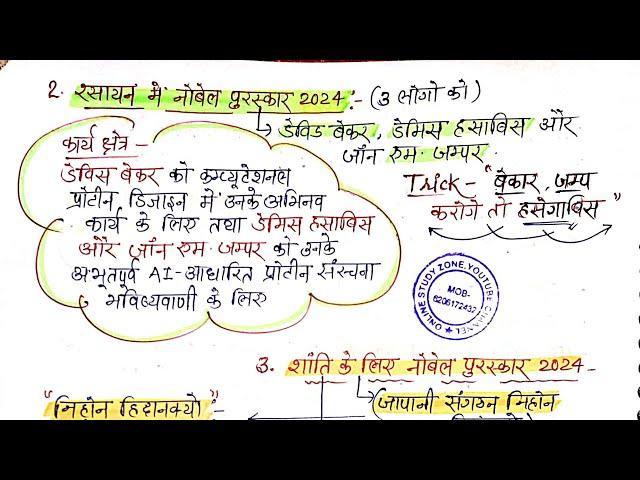 2. रसायन में नोबेल पुरस्कार 2024:- (3 लोगो को)
↳ डेविड बेकर, डेमिस हसाबिस और
जॉन एम. जम्पर
कार्य क्षेत्र -
डेविस बेकर को कम्प्यूटेशनल
प्रोटीन डिजाइन में उनके अभिनव
कार्य के लिए तथा डेमिस हसाबिस
और जॉन एम. जम्पर को उनके
अभूतपूर्व AI-आधारित प्रोटीन संरचना
भविष्यवाणी के लिए
Trick- "बेकार, जम्प
करोगे तो हसेगाबिस"
ONLINE STUDY ZONE, YOUTUBE CHANNEL
MOB-
6206172432
3. शांति के लिए नोबेल पुरस्कार 2024-
"निहोन हिदानक्यो":-
(जापानी संगठन निहोन